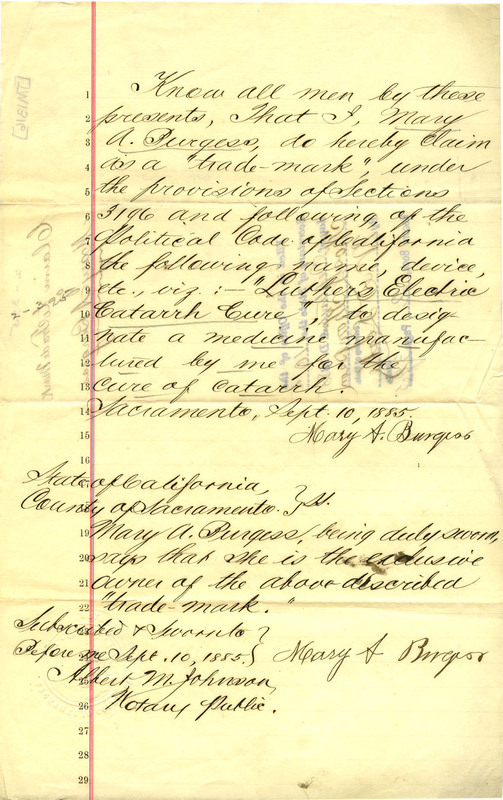 Know all men by these
presents, That I, Mary
A. Burgess, do hereby claim
as a "trade-mark", under
the provisions of Sections
3196 and following of the
Political Code of California
the following name, device,
etc., viz.:- "Luther's Electric
Catarrh Cure", to desig-
nate a medicine manufac-
tured by me for the
cure of catarrh.
Sacramento, Sept. 10, 1885.
Mary A. Burgess
State of California,
County of Sacramento. } ss.
Mary A. Burgess, being duly sworn,
says that she is the exclusive
owner of the above described
"trade-mark."
Subscribed & Sworn to }
Before me Sept. 10, 1885. } Mary A Burgess
Albert M. Johnson,
Notary Public.
1
2
3
4
5
6
7
8
9
10
11
12
13
14
15
16
19
20
21
22
26
27
28
29